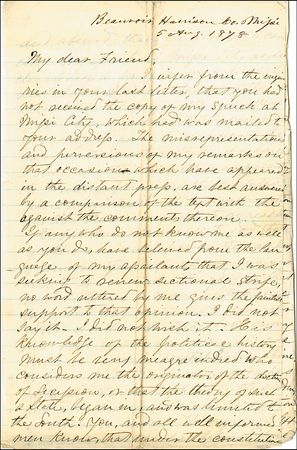 Beauvoir Harrison Co. Mipi
5 Aug. 1878
My dear Friend,
I infer from the inqui-
ries in your last letter, that you had
not received the copy of my Speech at
Mipi City, which had was mailed to
your address. The misrepresentations
and perversions of my remarks on
that occasion which have appeared
in the distant press, are best answered
by a comparison of the text with the
against the comments thereon.
If any who do not know me as well
as you do, have believed from the lan-
guage of my assailants that I was
seeking to renew sectional strife,
no word uttered by me gives the faintest
support to that opinion. I did not
say it - I did not wish it. His
knowledge of the political history
must be very meagre indeed who
considers me the originator of the doctrine
of Secession, or that the theory of
State, began in, and was limited to
the South. You, and all well informed
men know, that under the constitution